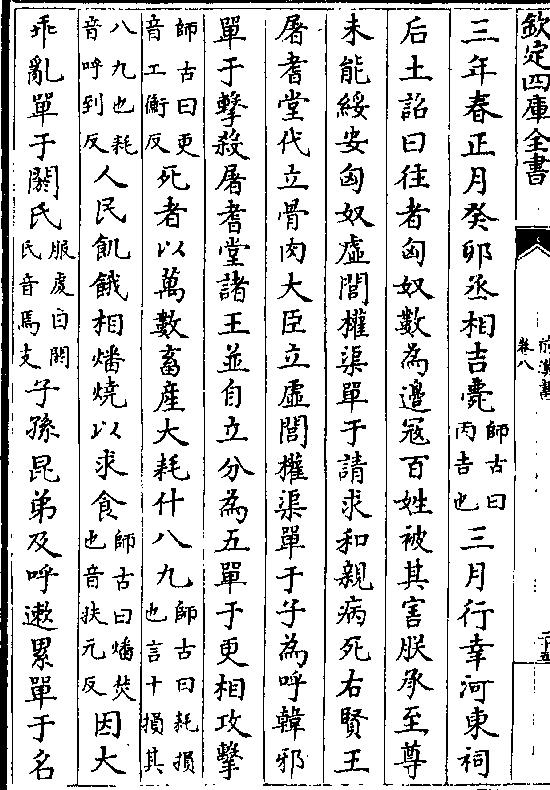 欽定四庫全書
卷八
三年春正月癸卯丞相吉薨師古曰丙吉也三月行幸河東祠
后土詔曰往者匈奴數為邊冦百姓被其害朕承至尊
未能綏安匈奴虛閭權渠單于請求和親病死右賢王
屠耆堂代立骨肉大臣立虛閭權渠單于子為呼韓邪
單于擊殺屠耆堂諸王並自立分為五單于更相攻擊
師古曰更音工衡反死者以萬數畜産大耗什八九師古曰耗損也言十損其
八九也耗音呼到反人民飢餓相燔燒以求食師古曰燔焚也音扶元反因大
乖亂單于閼氏服虔曰閼氏音焉支子孫昆弟及呼遬累單于名